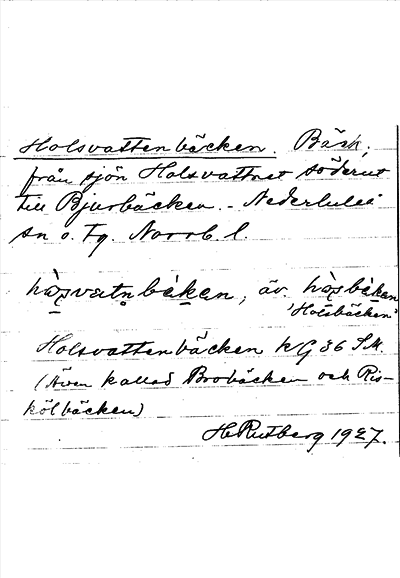 Holsvattenbäcken. Bäck,
från sjön Holsvattnet söderut
till Bjurbäcken. - Nederluleå
sn o. tg. Norrb. l.
hàṣvatṇbäkan, äv. hàṣbäkan
'Holsbäcken'
Holsvattenbäcken kG 36 S.K.
(Även kallad Brobäcken och Ris-
kölbäcken)
H. Rutberg 1927.